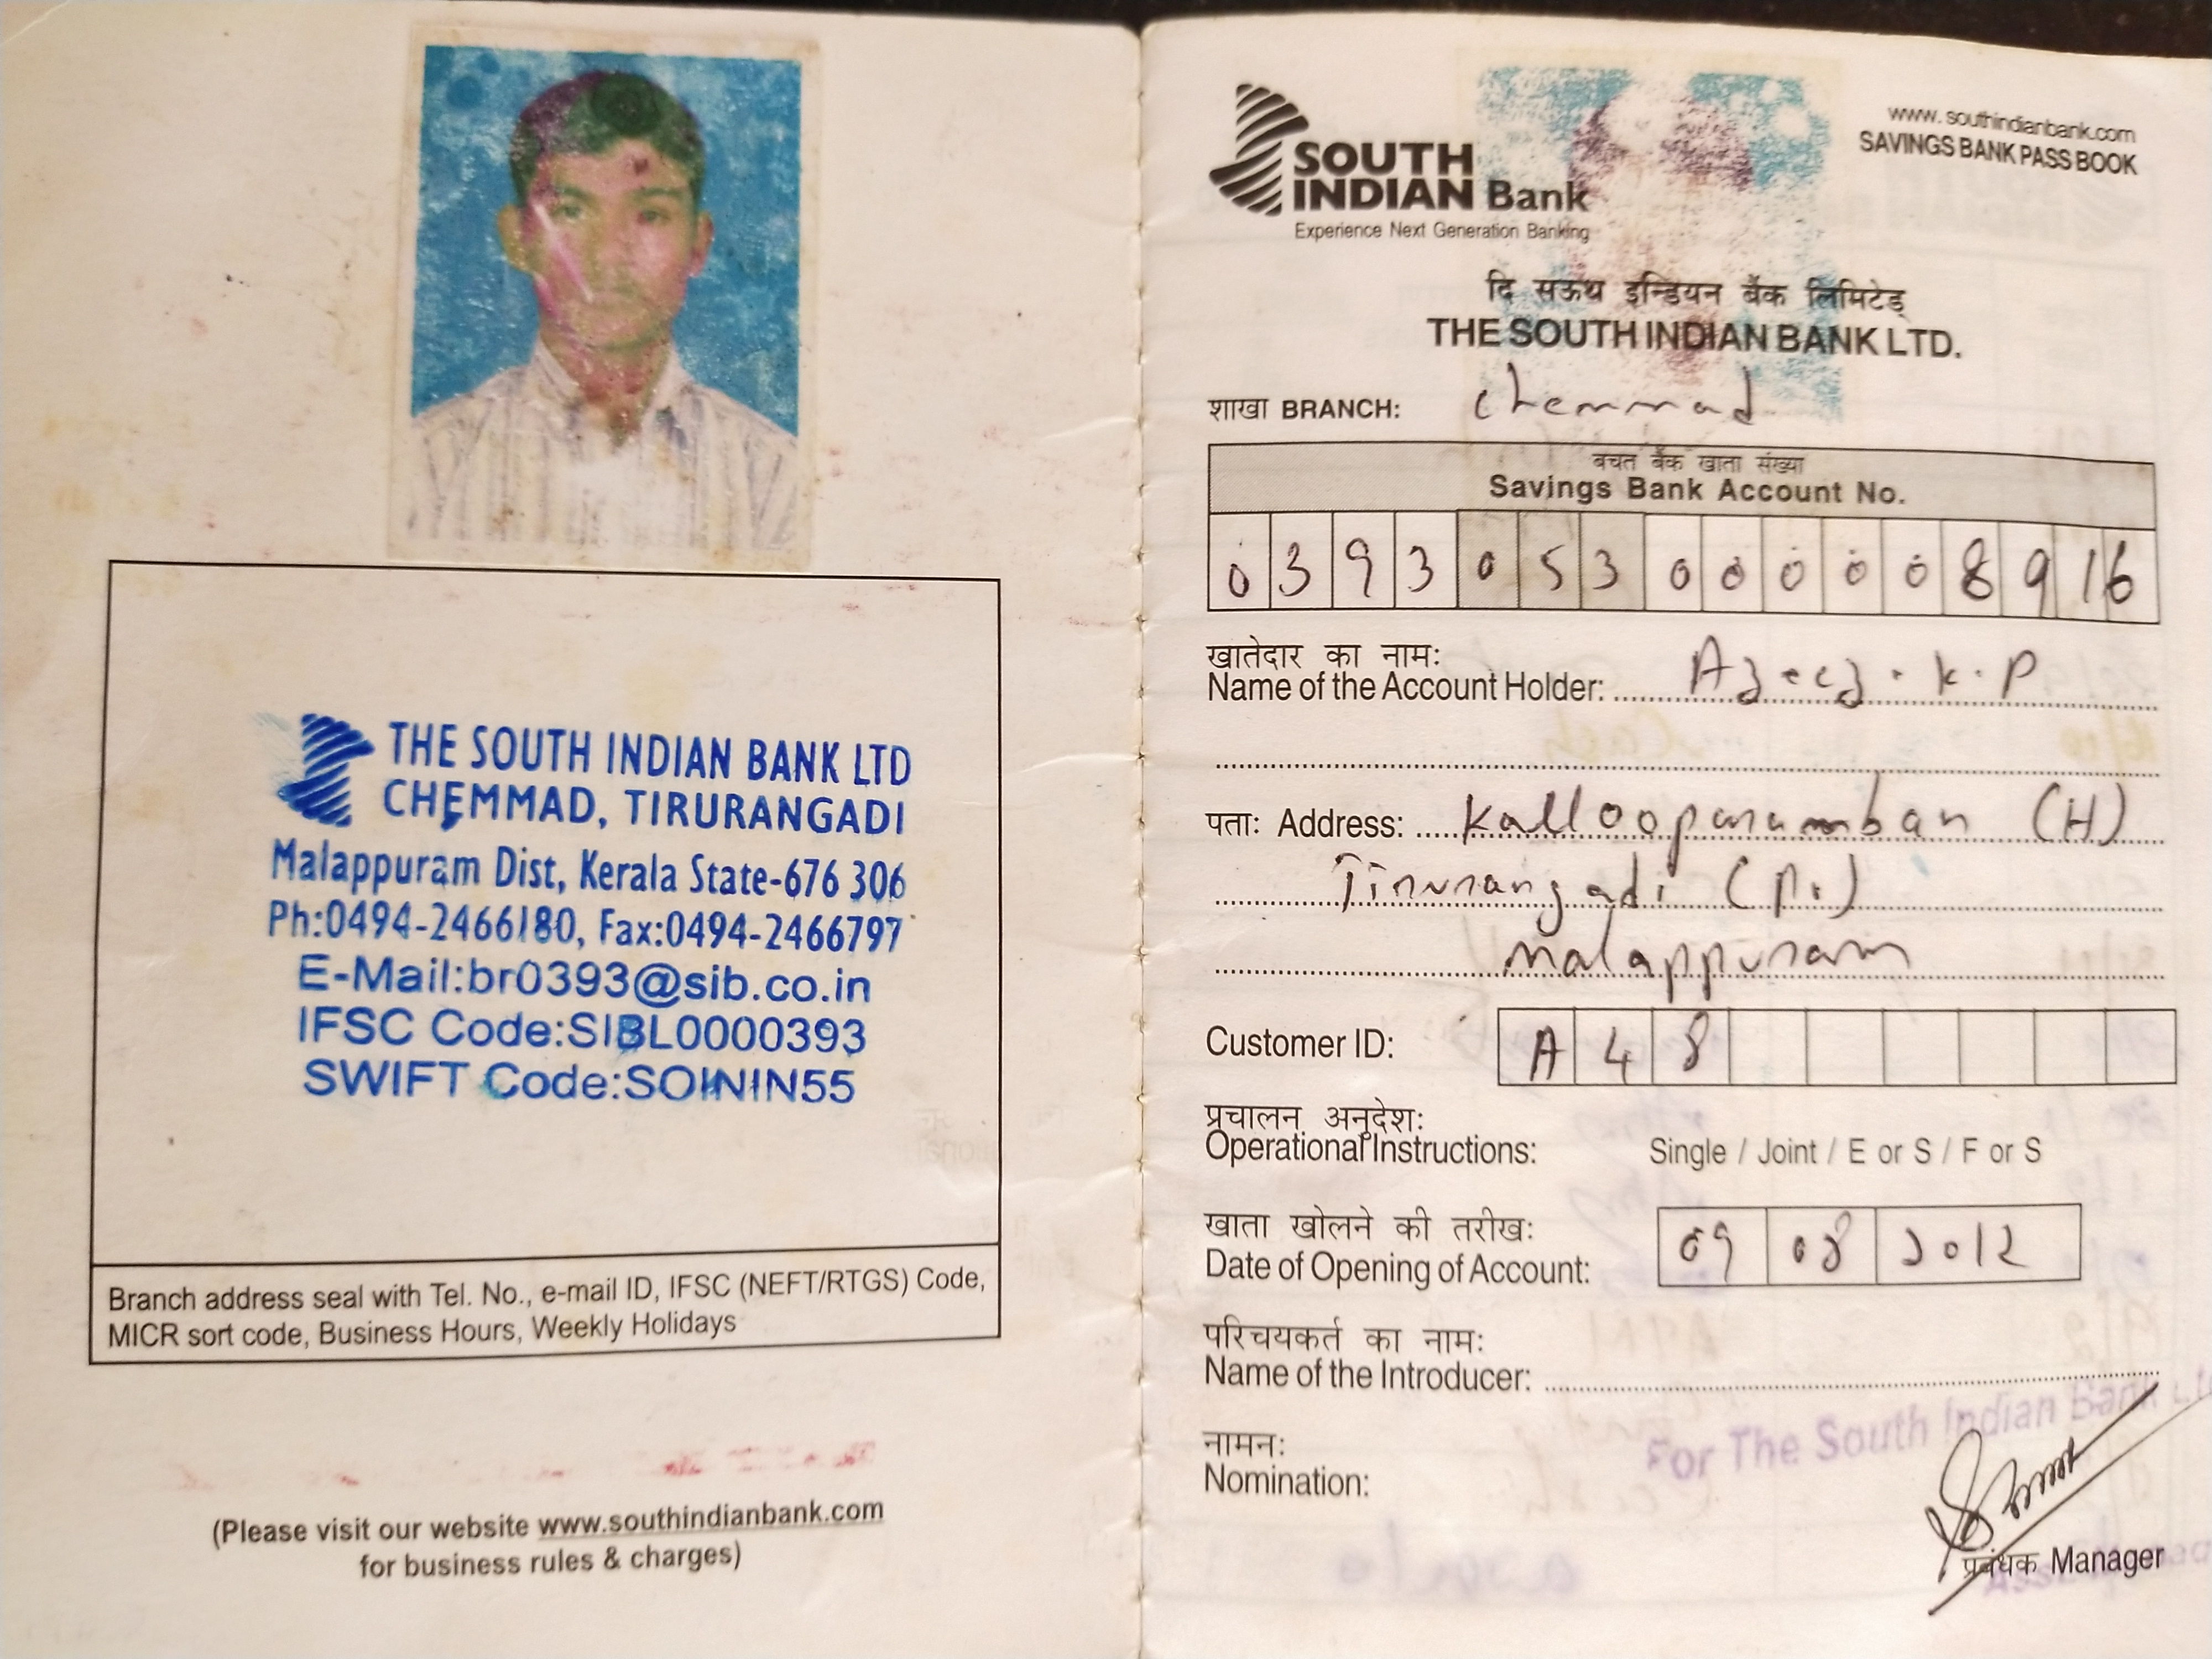 THE SOUTH INDIAN BANK LTD
CHEMMAD, TIRURANGADI
Malappuram Dist, Kerala State-676 306
Ph:0494-2466180, Fax:0494-2466797
E-Mail:br0393@sib.co.in
IFSC Code:SIBL0000393
SWIFT Code:SOININ55
Branch address seal with Tel. No., e-mail ID, IFSC (NEFT/RTGS) Code,
MICR sort code, Business Hours, Weekly Holidays
(Please visit our website www.southindianbank.com
for business rules & charges)
SOUTH
INDIAN Bank
Experience Next Generation Banking
www.southindianbank.com
SAVINGS BANK PASS BOOK
दि सऊथ इन्डियन बैंक लिमिटेड्
THE SOUTH INDIAN BANK LTD.
शाखा BRANCH: Chemmad
बचत बैंक खाता संख्या
Savings Bank Account No.
0393053000008916
खातेदार का नाम:
Name of the Account Holder: Azeez. K. P
पता: Address: Kallooparamban (H)
Tirurangadi (Po)
Malappuram
Customer ID: A48
प्रचालन अनुदेश:
Operational Instructions: Single / Joint / E or S / F or S
खाता खोलने की तरीख:
Date of Opening of Account: 09 08 2012
परिचयकर्त का नाम:
Name of the Introducer:
For The South Indian Bank Lt
नामन:
Nomination:
प्रबंधक Manager